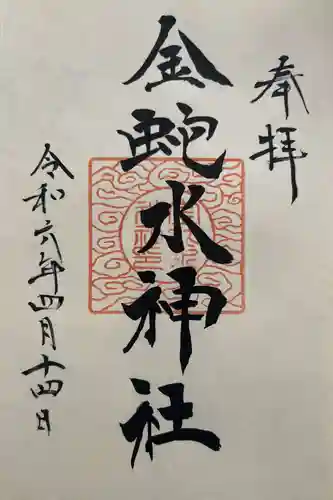 奉拝
金蛇水神社
令和六年四月十四日